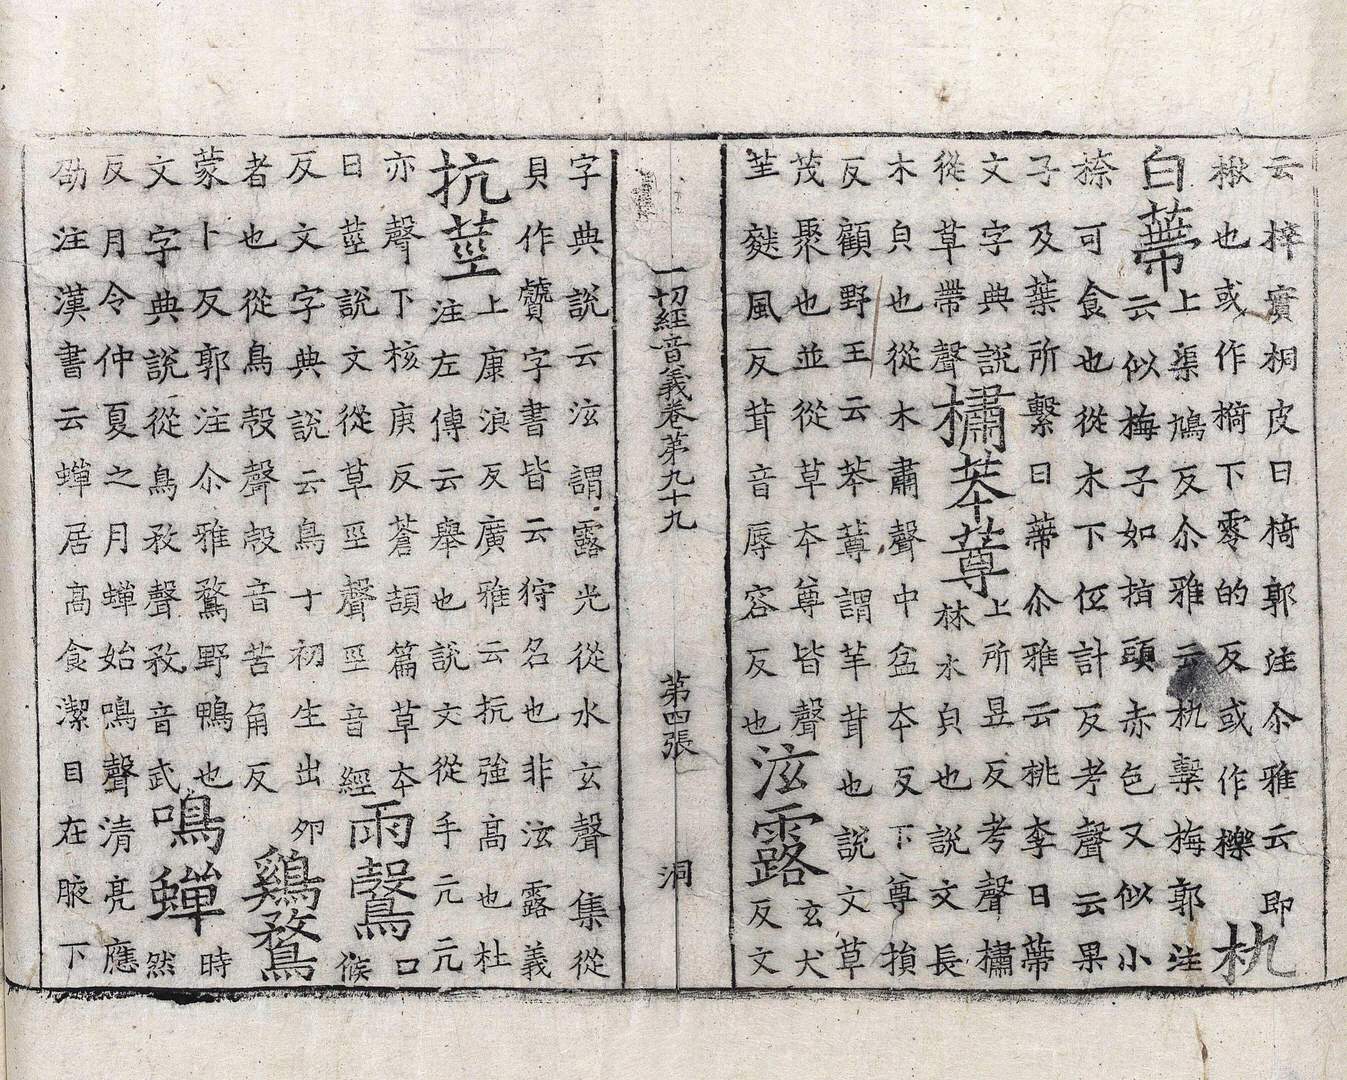 云梓實桐皮曰椅郭注尒雅云即
楸也或作檹下零的反或作櫟
朹
白蔕
上渠鳩反尒雅云朹檕梅郭注
云似梅子如指頭赤色又似小
㮏可食也從木下伍計反考聲云果
子及葉所繫曰蔕尒雅云桃李曰蔕
文字典說
從草帶聲
橚莽蓴
上所昱反考聲橚
林水皃也說文長
木皃也從木肅聲中盆夲反下尊損
反顧野王云莽蓴謂芊茸也說文草
茂聚也並從草夲尊皆聲
芏㷼風反茸音辱容反也
泫露
玄犬
反文
一切經音義卷第九十九 第四張 洞
字典說云泫謂露光從水玄聲集從
貝作贙字書皆云狩名也非泫露義
抗莖
上康浪反廣雅云抗強高也杜
注左傳云舉也說文從手元元
亦聲下核庚反蒼頡篇草夲
曰莖說文從草巠聲巠音經
雨鷇
口
候
反文字典說云鳥子初生出卵
者也從鳥㱿聲㱿音苦角反
鷄鶩
蒙卜反郭注尒雅鶩野鴨也
文字典說從鳥敄聲敄音武
鳴蟬
時
然
反月令仲夏之月蟬始鳴聲清亮應
劭注漢書云蟬居高食潔目在腋下